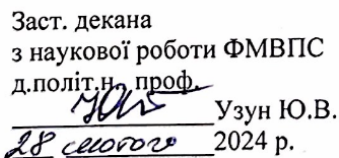 Заст. декана
з наукової роботи ФМВПС
д.політ.н., проф.
Узун Ю.В.
28 лютого 2024 р.